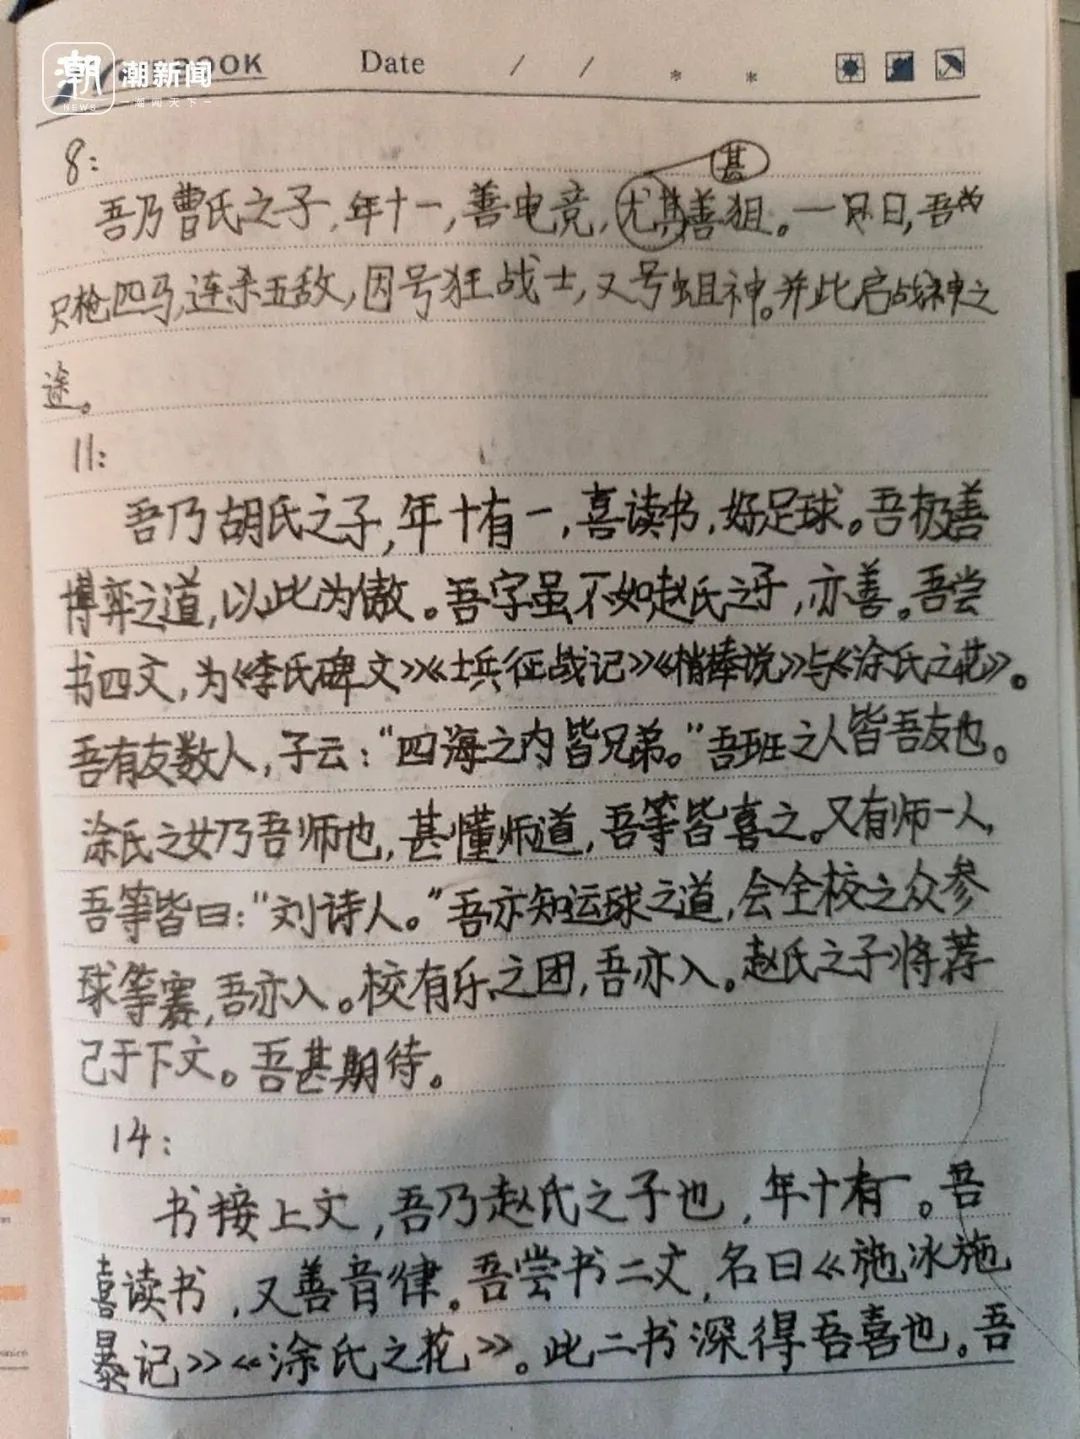 潮新闻
NEWS
潮闻天下
BOOK Date / / * *
8:
甚
吾乃曹氏之子,年十一,善电竞,尤其善狙。一日,吾
只枪四马,连杀五敌,因号狂战士,又号蛆神。并此启战神之
途。
11:
吾乃胡氏之子,年十有一,喜读书,好足球。吾极善
博弈之道,以此为傲。吾字虽不如赵氏之子,亦善。吾尝
书四文,为《李氏碑文》《士兵征战记》《梢棒说》与《涂氏之花》。
吾有友数人,子云:“四海之内皆兄弟。”吾班之人皆吾友也。
涂氏之女乃吾师也,甚懂师道,吾等皆喜之。又有师一人,
吾等皆曰:“刘诗人。”吾亦知运球之道,会全校之众参
球等赛,吾亦入。校有乐之团,吾亦入。赵氏之子将荐
己于下文。吾甚期待。
14:
书接上文,吾乃赵氏之子也,年十有一。吾
喜读书,又善音律。吾尝书二文,名曰《施冰施
暴记》《涂氏之花》。此二书深得吾喜也。吾